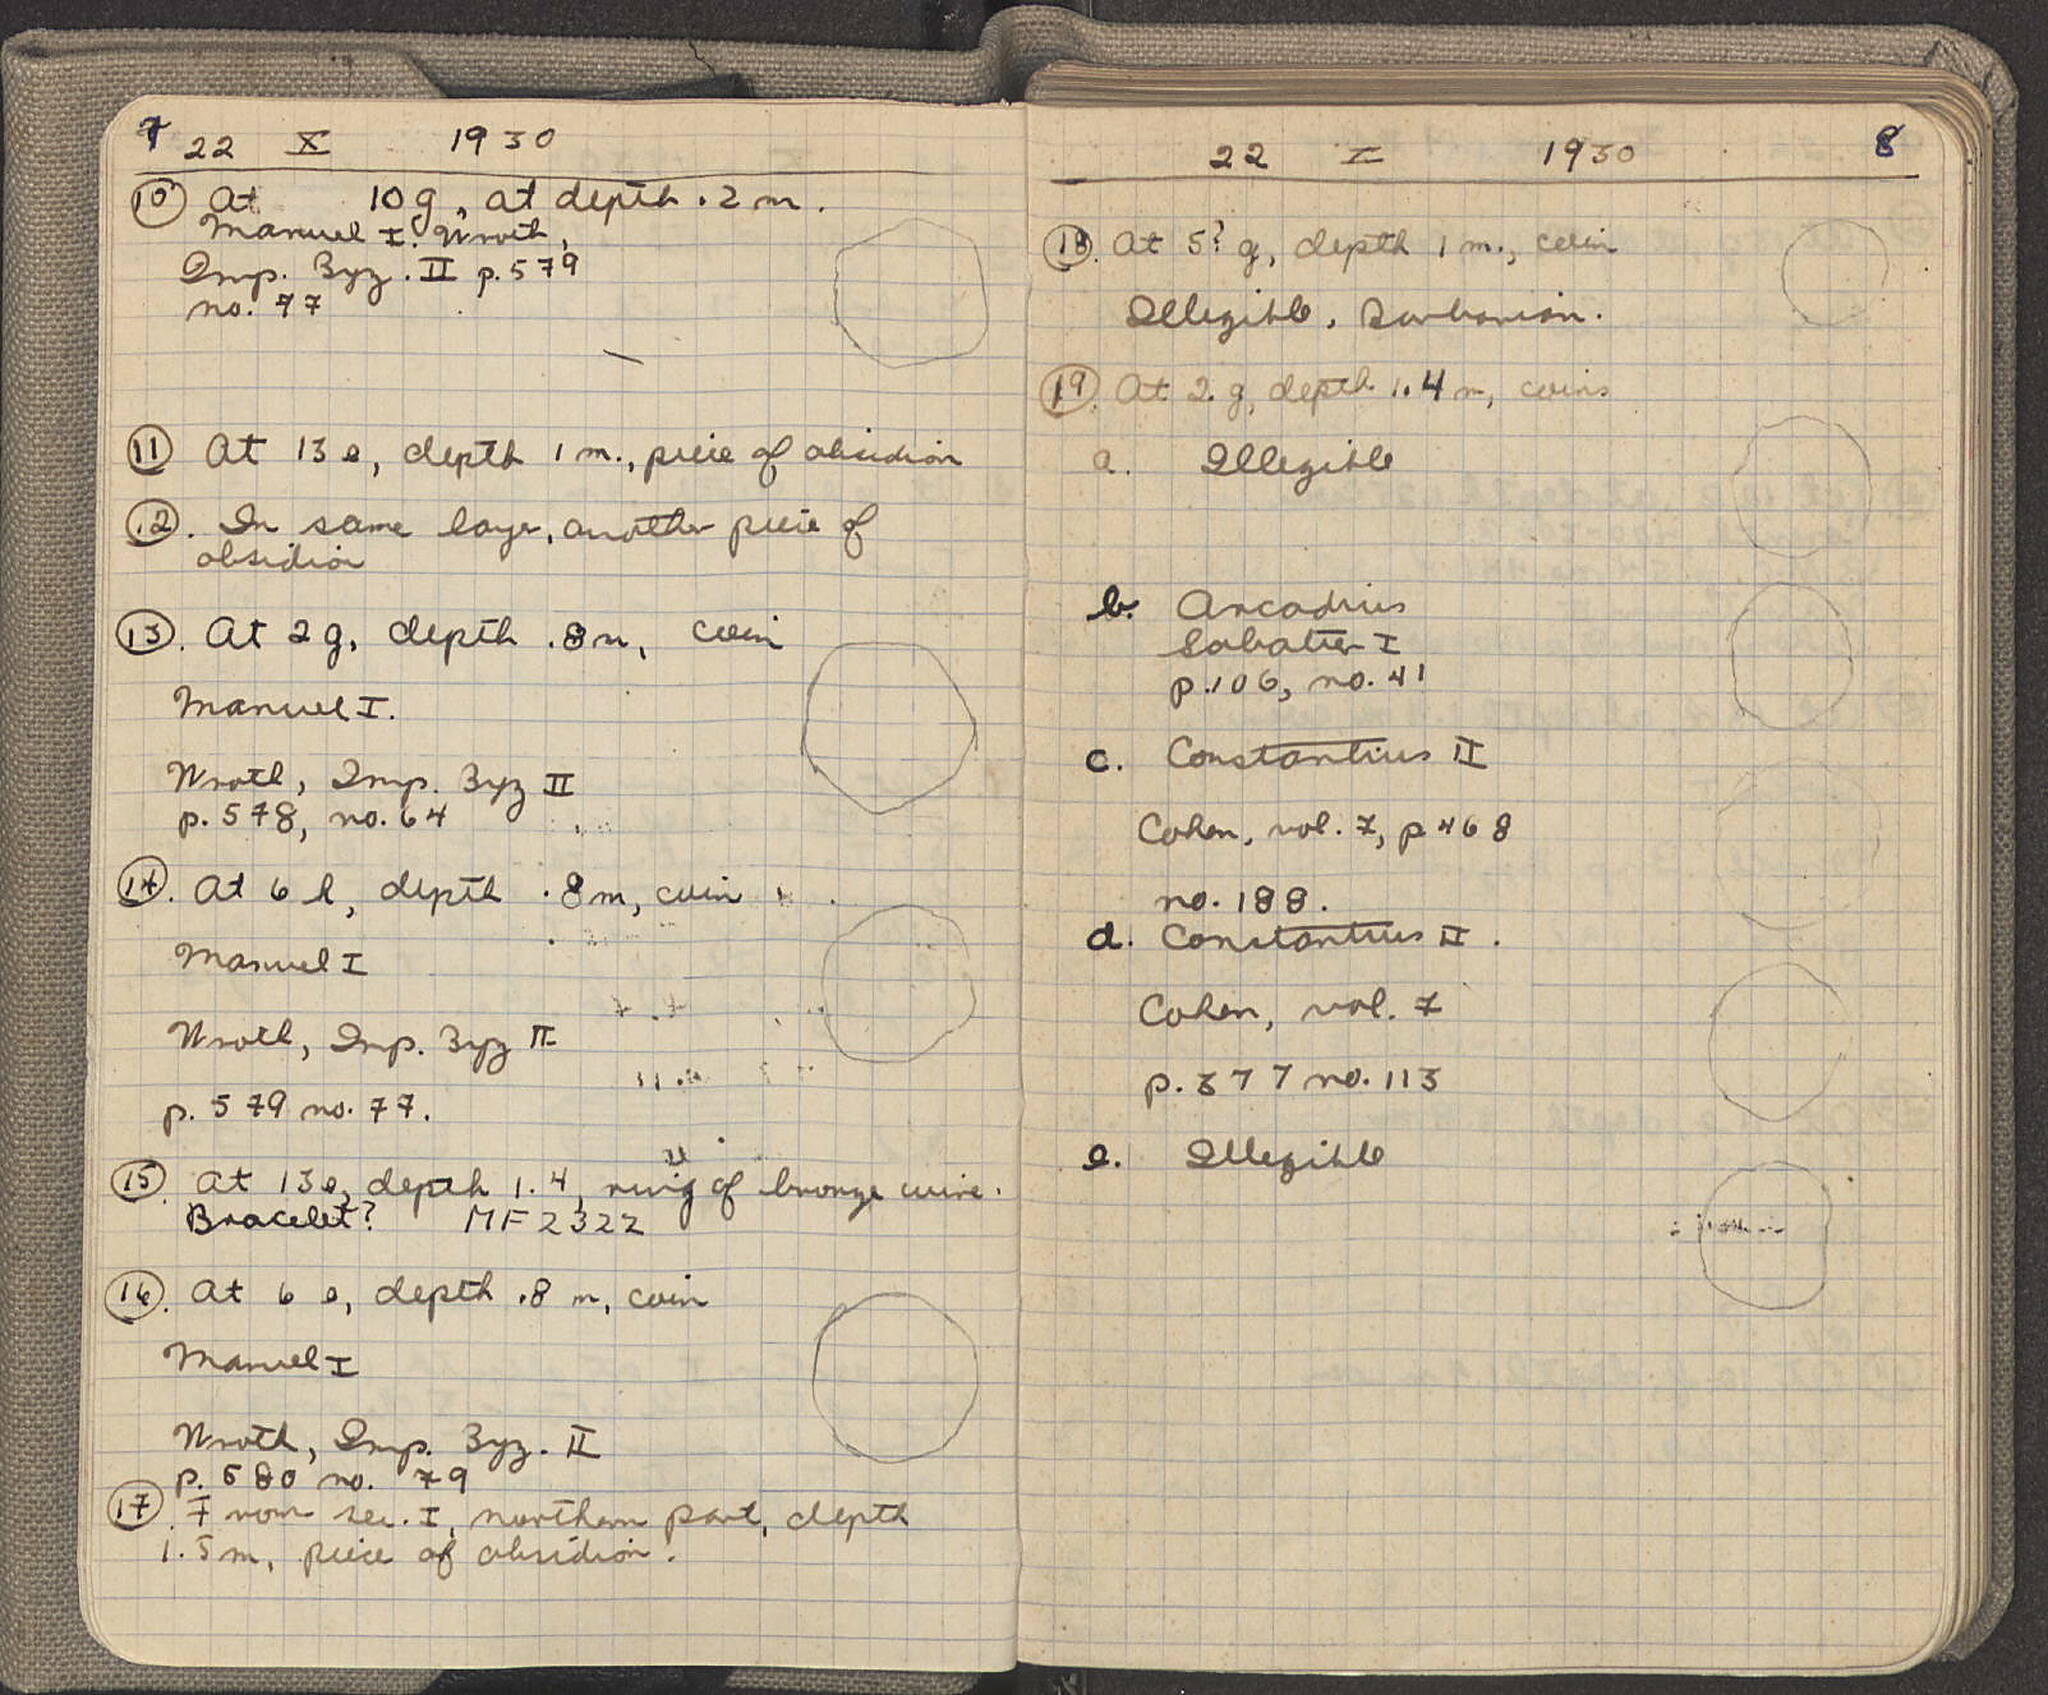 7 22 X 1930
10 At 10g, at depth .2 m.
Manuel I. Wroth,
Imp. Byz. II p. 579
no. 77
11 At 13 e, depth 1 m., piece of obsidian
12. In same layer, another piece of
obsidian
13. At 2 g, depth .8 m, coin
Manuel I.
Wroth, Imp. Byz II
p. 578, no. 64
14. At 6 h, depth .8 m, coin
Manuel I
Wroth, Imp. Byz II
p. 579 no. 77.
15. At 13 e, depth 1.4, ring of bronze wire.
Bracelet? MF 2322
16. At 6 e, depth .8 m, coin
Manuel I
Wroth, Imp. Byz. II
p. 580 no. 79
17. From sec. I, northern part, depth
1.5 m, piece of obsidian.
22 X 1930 8
18. At 5? g, depth 1 m., coin
Illegible,
19. At 2 g, depth 1.4 m, coins
a. Illegible
b. Arcadius
Sabatier I
p. 106, no. 41
c. Constantius II
Cohen, vol. 7, p 468
no. 188.
d. Constantius II.
Cohen, vol. 7
p. 377 no. 113
e. Illegible